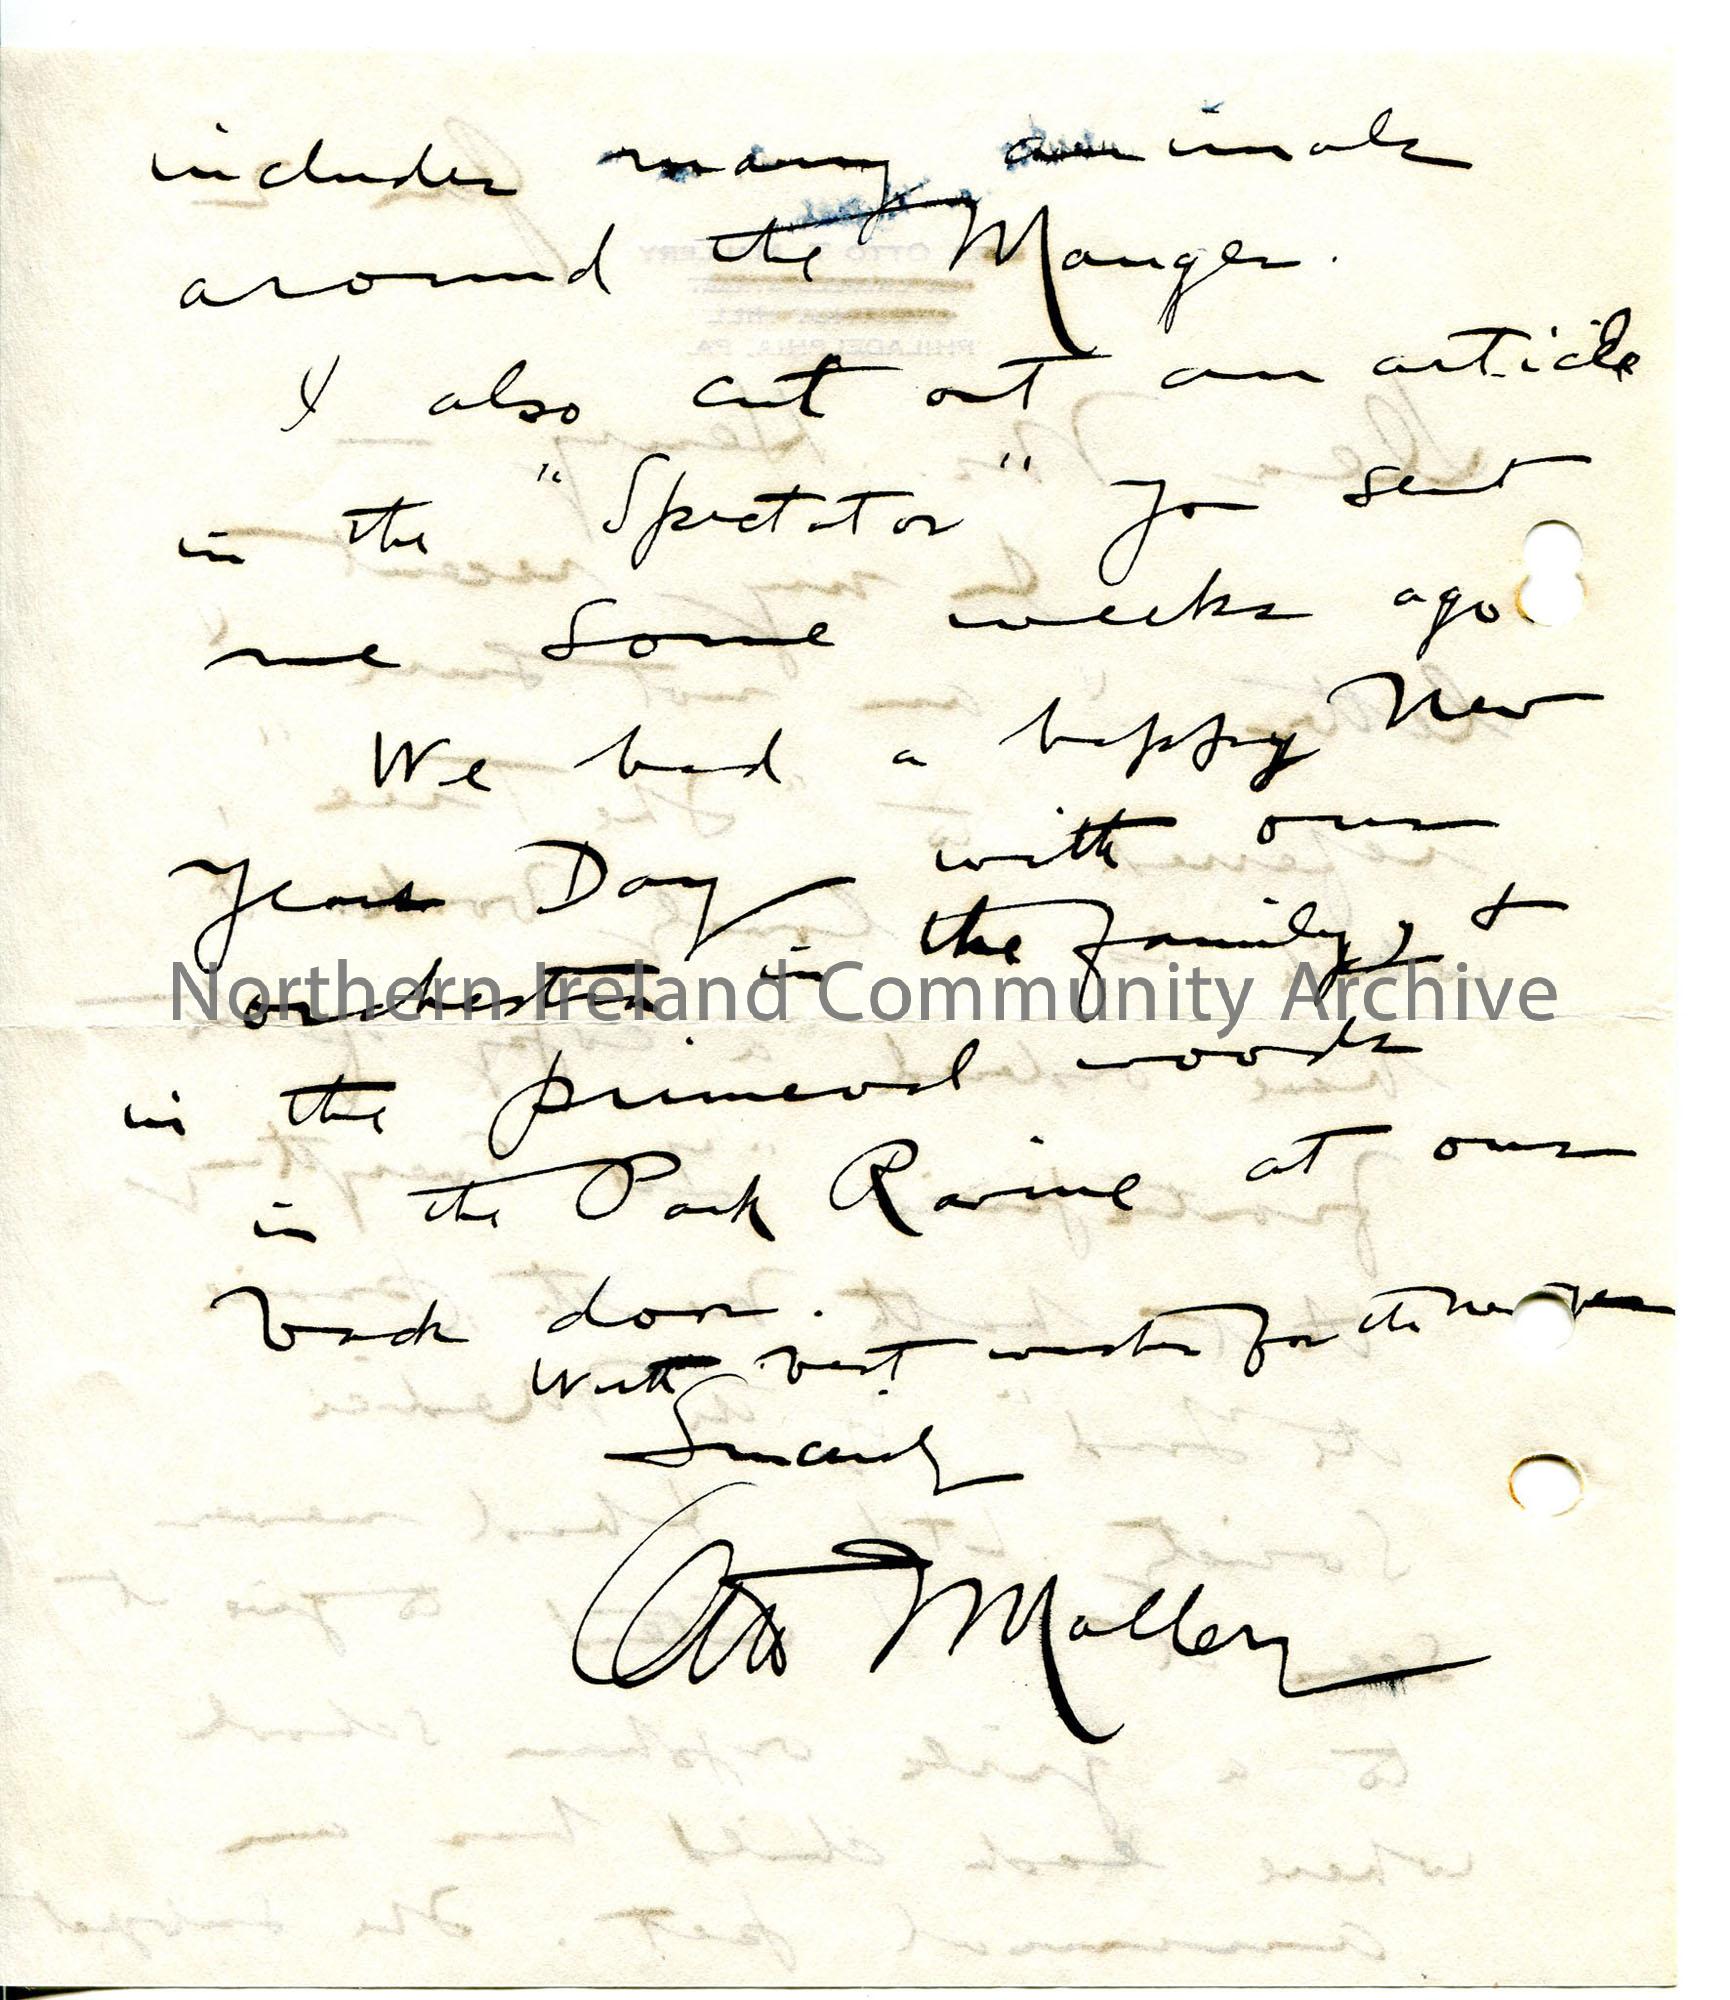 includes many animals
around the Manger.
I also cut out an article
in the "Spectator" you sent
me some weeks ago
We had a happy New
Years Day with our
orchestra in the family, &
Northern Ireland Community Archive
in the primeval woods
in the Park Ravine at our
back door.
With best wishes for the New Year
Sincerely
Otto Mallery